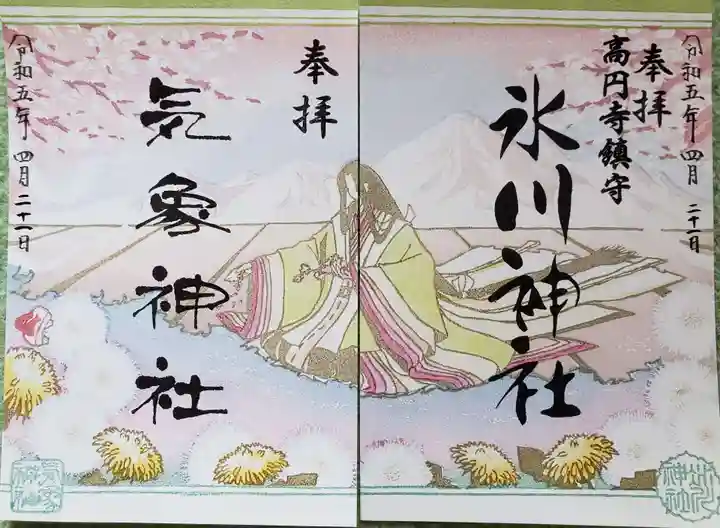 奉拝
高円寺鎮守
氷川神社
令和五年 四月 二十一日
奉拝
気象神社
令和五年 四月 二十一日
気象神社
氷川神社